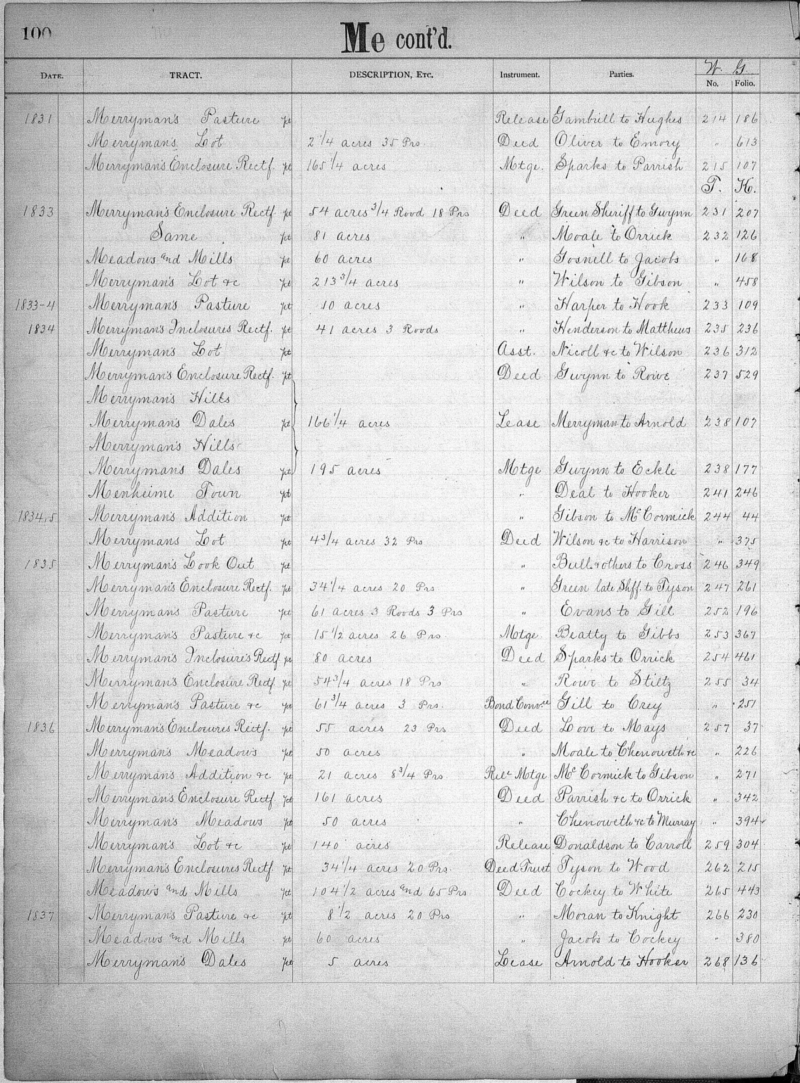 100
Me cont'd.
DATE. TRACT. DESCRIPTION, ETC. Instrument. Parties. W G
No. Folio.
1831 Merryman's Pasture pt Release Gambrill to Hughes 214 186
Merrymans Lot pt 2 1/4 acres 35 Prs Deed Oliver to Emory " 613
Merryman's Enclosure Rectf. pt 165 1/4 acres Mtge. Sparks to Parrish 215 107
T. K.
1833 Merryman's Enclosure Rectf pt 54 acres 3/4 Rood 18 Prs Deed Green Sheriff to Gwynn 231 207
Same pt 81 acres " Moale to Orrick 232 126
Meadows and Mills pt 60 acres " Gosnell to Jacobs " 168
Merryman's Lot &c pt 213 3/4 acres " Wilson to Gibson " 458
1833-4 Merryman's Pasture pt 10 acres " Harper to Hook 233 109
1834 Merryman's Inclosures Rectf. pt 41 acres 3 Roods " Henderson to Matthews 235 236
Merryman's Lot pt Asst. Nicoll &c to Wilson 236 312
Merryman's Enclosure Rectf. pt Deed Gwynn to Rowe 237 529
Merryman's Hills
Merryman's Dales pt 166 1/4 acres Lease Merryman to Arnold 238 107
Merryman's Hills
Merryman's Dales pt 195 acres Mtge Gwynn to Eckle 238 177
Menheime Town pt " Deal to Hooker 241 246
1834,5 Merryman's Addition pt " Gibson to McCormick 244 44
Merrymans Lot pt 4 3/4 acres 32 Prs Deed Wilson &c to Harrison " 375
1835 Merryman's Look Out pt " Bull & others to Cross 246 349
Merryman's Enclosure Rectf. pt 34 1/4 acres 20 Prs " Green late Shff. to Tyson 247 261
Merrymans Pasture pt 61 acres 3 Roods 3 Prs " Evans to Gill 252 196
Merryman's Pasture &c pt 15 1/2 acres 26 Prs Mtge Beatty to Gibbs 253 367
Merryman's Inclosure's Rectf pt 80 acres Deed Sparks to Orrick 254 461
Merryman's Enclosure Rectf pt 54 3/4 acres 18 Prs " Rowe to Stiltz 255 34
Merryman's Pasture &c pt 61 3/4 acres 3 Prs. Bond Convce Gill to Crey " 251
1836 Merryman's Enclosures Rectf. pt 55 acres 23 Prs Deed Love to Mays 257 37
Merryman's Meadows pt 50 acres " Moale to Chenoweth &c " 226
Merryman's Addition &c pt 21 acres 8 3/4 Prs Rele Mtge McCormick to Gibson " 271
Merryman's Enclosure Rectf pt 161 acres Deed Parrish &c to Orrick " 342
Merryman's Meadows pt 50 acres " Chenoweth &c to Murray " 394
Merryman's Lot &c pt 140 acres Release Donaldson to Carroll 259 304
Merryman's Enclosures Rectf pt 34 1/4 acres 20 Prs Deed Trust Tyson to Wood 262 215
Meadows and Mills pt 104 1/2 acres and 65 Prs Deed Cockey to White 265 443
1837 Merryman's Pasture &c pt 8 1/2 acres 20 Prs " Moran to Knight 266 230
Meadows and Mills pt 60 acres " Jacobs to Cockey " 380
Merryman's Dales pt 5 acres Lease Arnold to Hooker 268 136